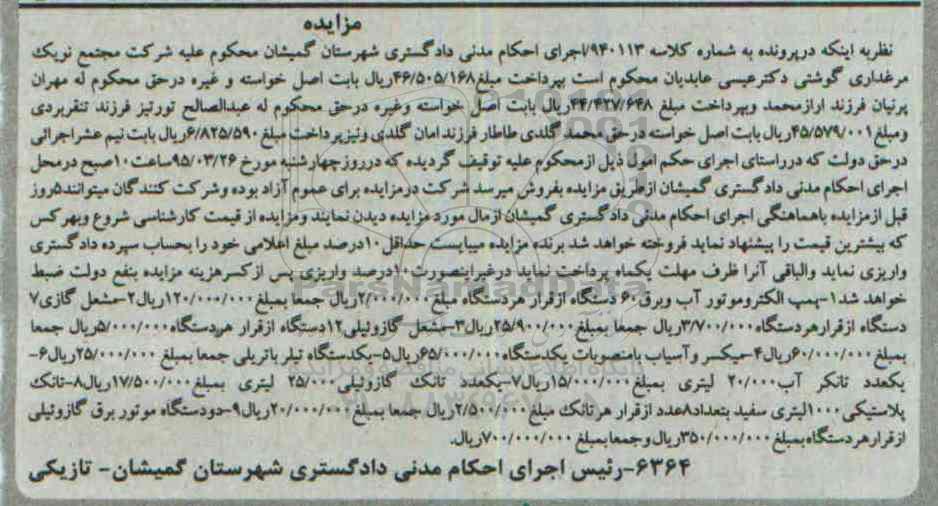 مزایده
نظربه اینکه درپرونده به شماره کلاسه ۹۴۰۱۱۳/اجرای احکام مدنی دادگستری شهرستان گمیشان محکوم علیه شرکت مجتمع نویک
مرغداری گوشتی دکترعیسی عابدیان محکوم است بپرداخت مبلغ۴۶/۵۰۵/۱۶۸ریال بابت اصل خواسته و غیره درحق محکوم له مهران
پرنیان فرزند ارازمحمد وبپرداخت مبلغ ۴۴/۴۲۷/۶۴۸ریال بابت اصل خواسته وغیره درحق محکوم له عبدالصالح تورتیز فرزند تنقربردی
ومبلغ۴۵/۵۷۹/۰۰۱ریال بابت اصل خواسته درحق محمد گلدی طاطار فرزند امان گلدی ونیزپرداخت مبلغ۶/۸۲۵/۵۹۰ریال بابت نیم عشراجرائی
درحق دولت که درراستای اجرای حکم اموال ذیل ازمحکوم علیه توقیف گردیده که درروزچهارشنبه مورخ ۹۵/۰۳/۲۶ساعت۱۰صبح درمحل
اجرای احکام مدنی دادگستری گمیشان ازطریق مزایده بفروش میرسد شرکت درمزایده برای عموم آزاد بوده وشرکت کنندگان میتوانند۵روز
قبل ازمزایده باهماهنگی اجرای احکام مدنی دادگستری گمیشان ازمال مورد مزایده دیدن نمایند ومزایده از قیمت کارشناسی شروع وبهرکس
که بیشترین قیمت را پیشنهاد نماید فروخته خواهد شد برنده مزایده میبایست حداقل۱۰درصد مبلغ اعلامی خود را بحساب سپرده دادگستری
واریزی نماید والباقی آنرا ظرف مهلت یکماه پرداخت نماید درغیراینصورت۱۰درصد واریزی پس ازکسرهزینه مزایده بنفع دولت ضبط
خواهد شد۱-پمپ الکتروموتور آب وبرق۶۰دستگاه ازقرار هردستگاه مبلغ۲/۰۰۰/۰۰۰ریال جمعا بمبلغ۱۲۰/۰۰۰/۰۰۰ریال۲-مشعل گازی۷
دستگاه ازقرارهردستگاه۳/۷۰۰/۰۰۰ریال جمعا بمبلغ۲۵/۹۰۰/۰۰۰ریال۳-مشعل گازوئیلی۱۲دستگاه ازقرار هردستگاه۵/۰۰۰/۰۰۰ریال جمعا
بمبلغ۶۰/۰۰۰/۰۰۰ریال۴-میکسر وآسیاب بامنصوبات یکدستگاه۶۵/۰۰۰/۰۰۰ریال۵-یکدستگاه تیلر باتریلی جمعا بمبلغ ۲۵/۰۰۰/۰۰۰ریال۶-
یکعدد تانکر آب۲۰/۰۰۰ لیتری بمبلغ۱۵/۰۰۰/۰۰۰ریال۷-یکعدد تانک گازوئیلی۲۵/۰۰۰ لیتری بمبلغ۱۷/۵۰۰/۰۰۰ریال۸-تانک
پلاستیکی۱۰۰۰لیتری سفید بتعداد۸عدد ازقرار هرتانک مبلغ۲/۵۰۰/۰۰۰ریال جمعا بمبلغ۲۰/۰۰۰/۰۰۰ریال۹-دودستگاه موتور برق گازوئیلی
ازقرارهردستگاه بمبلغ۳۵۰/۰۰۰/۰۰۰ریال وجمعا بمبلغ۷۰۰/۰۰۰/۰۰۰ریال.
۶۳۶۴-رئیس اجرای احکام مدنی دادگستری شهرستان گمیشان- تازیکی
ParsNamadData